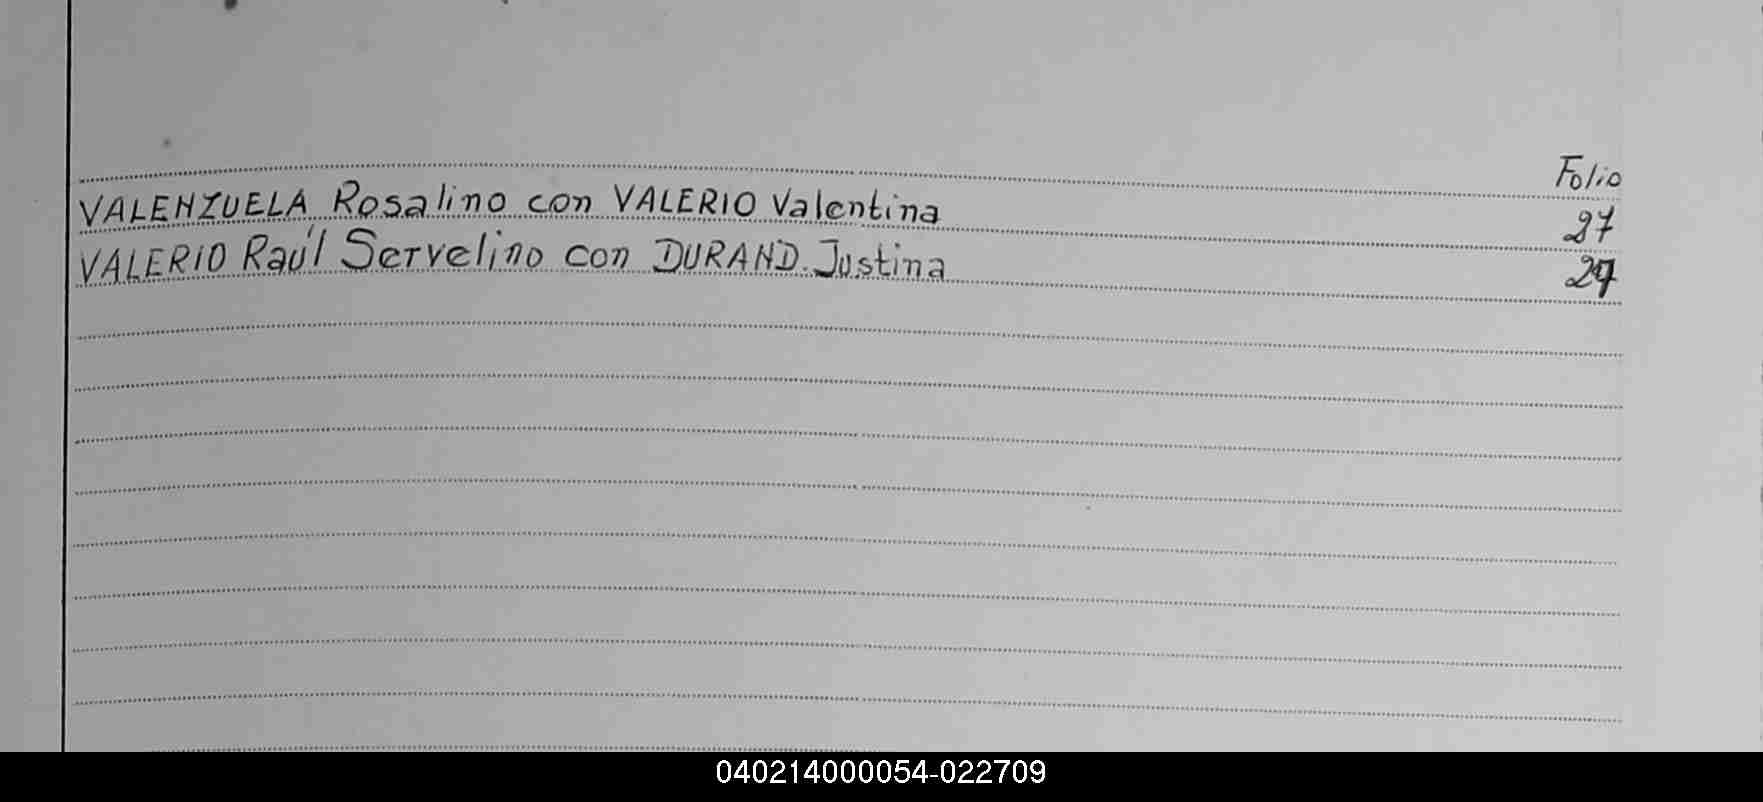 Folio
VALENZUELA Rosalino con VALERIO Valentina 27
VALERIO Raúl Servelino con DURAND Justina
040214000054-022709